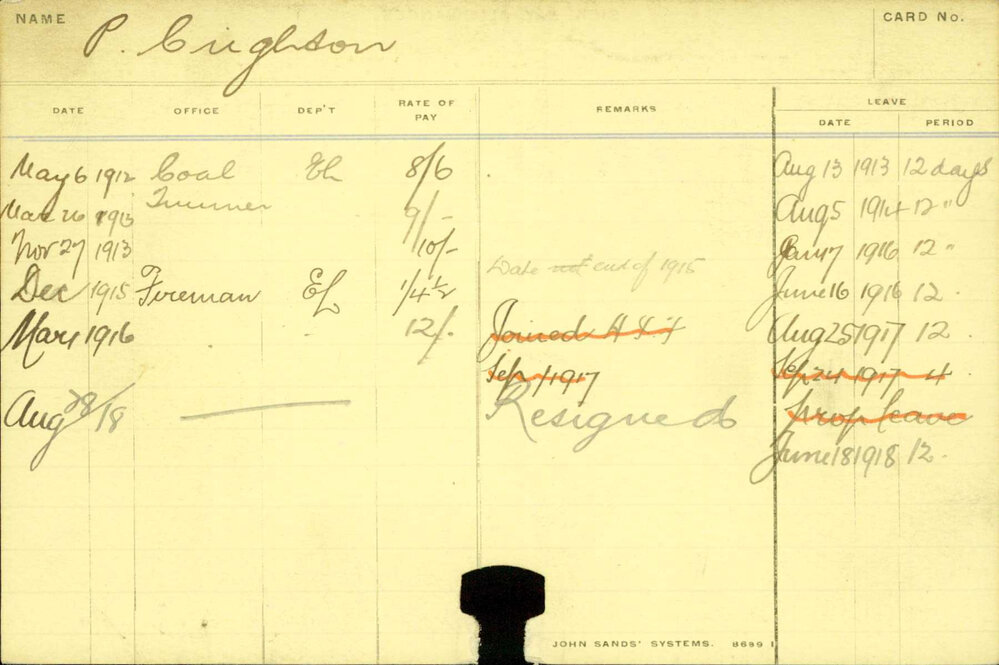 NAME P. Crighton CARD No.
LEAVE
DATE OFFICE DEP'T RATE OF PAY REMARKS DATE PERIOD
May 6 1912 Coal 8/6 Aug 13 1913 12 days
Trimmer
Mar 26 1913 9/- Aug 5 1914 12 "
Nov 27 1913 10/- Jan 17 1916 12 "
Date not end of 1915
Dec 1915 Fireman EL 1/4½ June 16 1916 12 .
Mar 1 1916 12/- Joined Aug 25 1917 12 .
Sep 1 1917 Sep 24 1917 4 .
Aug 28/18 Resigned prop leave
June 18 1918 12 .
JOHN SANDS' SYSTEMS. 8689